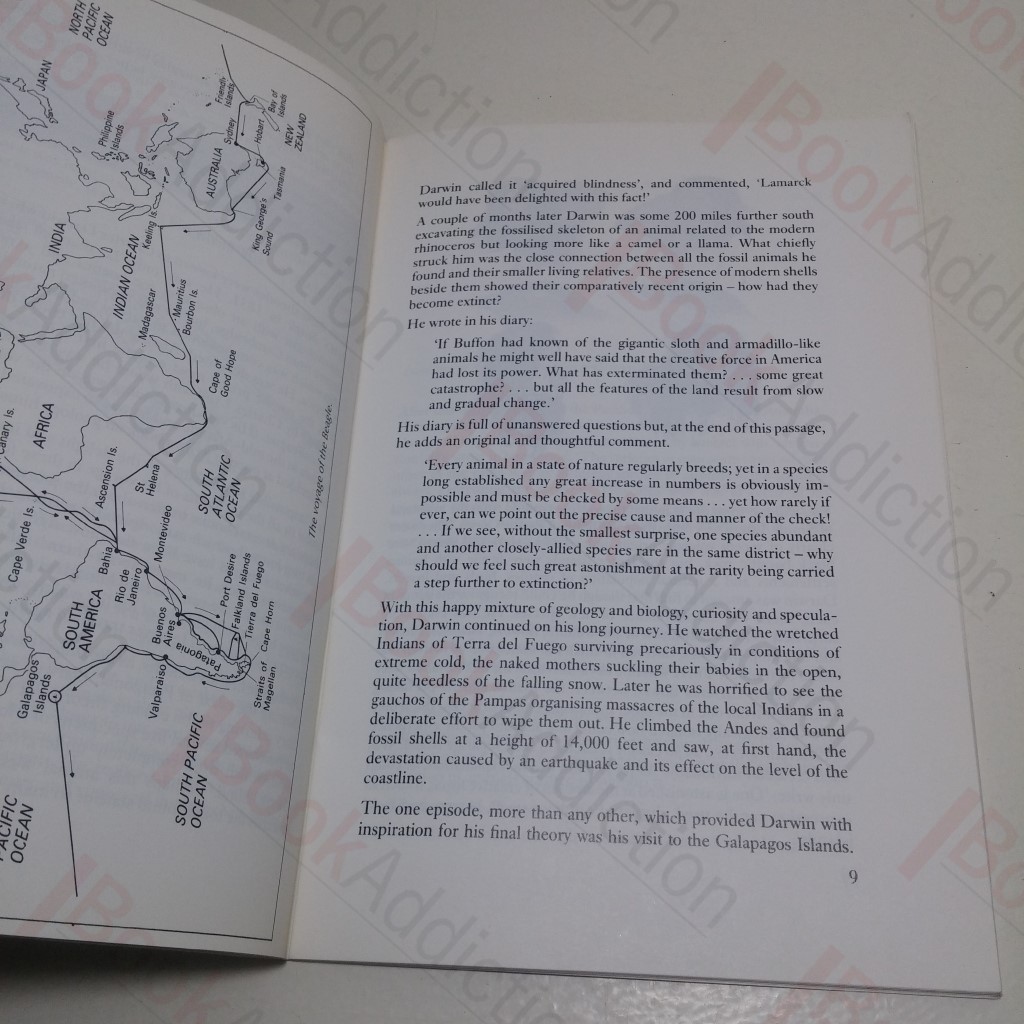 NORTH
PACIFIC
OCEAN
JAPAN
Philippine
Islands
INDIA
INDIAN OCEAN
Keeling Is.
AUSTRALIA
Sydney
Friendly
Islands
Hobart
Bay of
Islands
NEW
ZEALAND
Tasmania
King George's
Sound
Madagascar
Mauritius
Bourbon Is.
Cape of
Good Hope
AFRICA
Canary Is.
Cape Verde Is.
Ascension Is.
St
Helena
SOUTH
ATLANTIC
OCEAN
Bahia
Rio de
Janeiro
Montevideo
SOUTH
AMERICA
Buenos
Aires
Port Desire
Falkland Islands
Tierra del Fuego
Cape Horn
Straits of
Magellan
Patagonia
Valparaiso
Galapagos
Islands
SOUTH PACIFIC
OCEAN
PACIFIC
OCEAN
The voyage of the Beagle.
Darwin called it 'acquired blindness', and commented, 'Lamarck
would have been delighted with this fact!'
A couple of months later Darwin was some 200 miles further south
excavating the fossilised skeleton of an animal related to the modern
rhinoceros but looking more like a camel or a llama. What chiefly
struck him was the close connection between all the fossil animals he
found and their smaller living relatives. The presence of modern shells
beside them showed their comparatively recent origin – how had they
become extinct?
He wrote in his diary:
'If Buffon had known of the gigantic sloth and armadillo-like
animals he might well have said that the creative force in America
had lost its power. What has exterminated them? . . . some great
catastrophe? . . . but all the features of the land result from slow
and gradual change.'
His diary is full of unanswered questions but, at the end of this passage,
he adds an original and thoughtful comment.
'Every animal in a state of nature regularly breeds; yet in a species
long established any great increase in numbers is obviously im-
possible and must be checked by some means . . . yet how rarely if
ever, can we point out the precise cause and manner of the check!
. . . If we see, without the smallest surprise, one species abundant
and another closely-allied species rare in the same district – why
should we feel such great astonishment at the rarity being carried
a step further to extinction?'
With this happy mixture of geology and biology, curiosity and specula-
tion, Darwin continued on his long journey. He watched the wretched
Indians of Terra del Fuego surviving precariously in conditions of
extreme cold, the naked mothers suckling their babies in the open,
quite heedless of the falling snow. Later he was horrified to see the
gauchos of the Pampas organising massacres of the local Indians in a
deliberate effort to wipe them out. He climbed the Andes and found
fossil shells at a height of 14,000 feet and saw, at first hand, the
devastation caused by an earthquake and its effect on the level of the
coastline.
The one episode, more than any other, which provided Darwin with
inspiration for his final theory was his visit to the Galapagos Islands.
9
BookAddiction